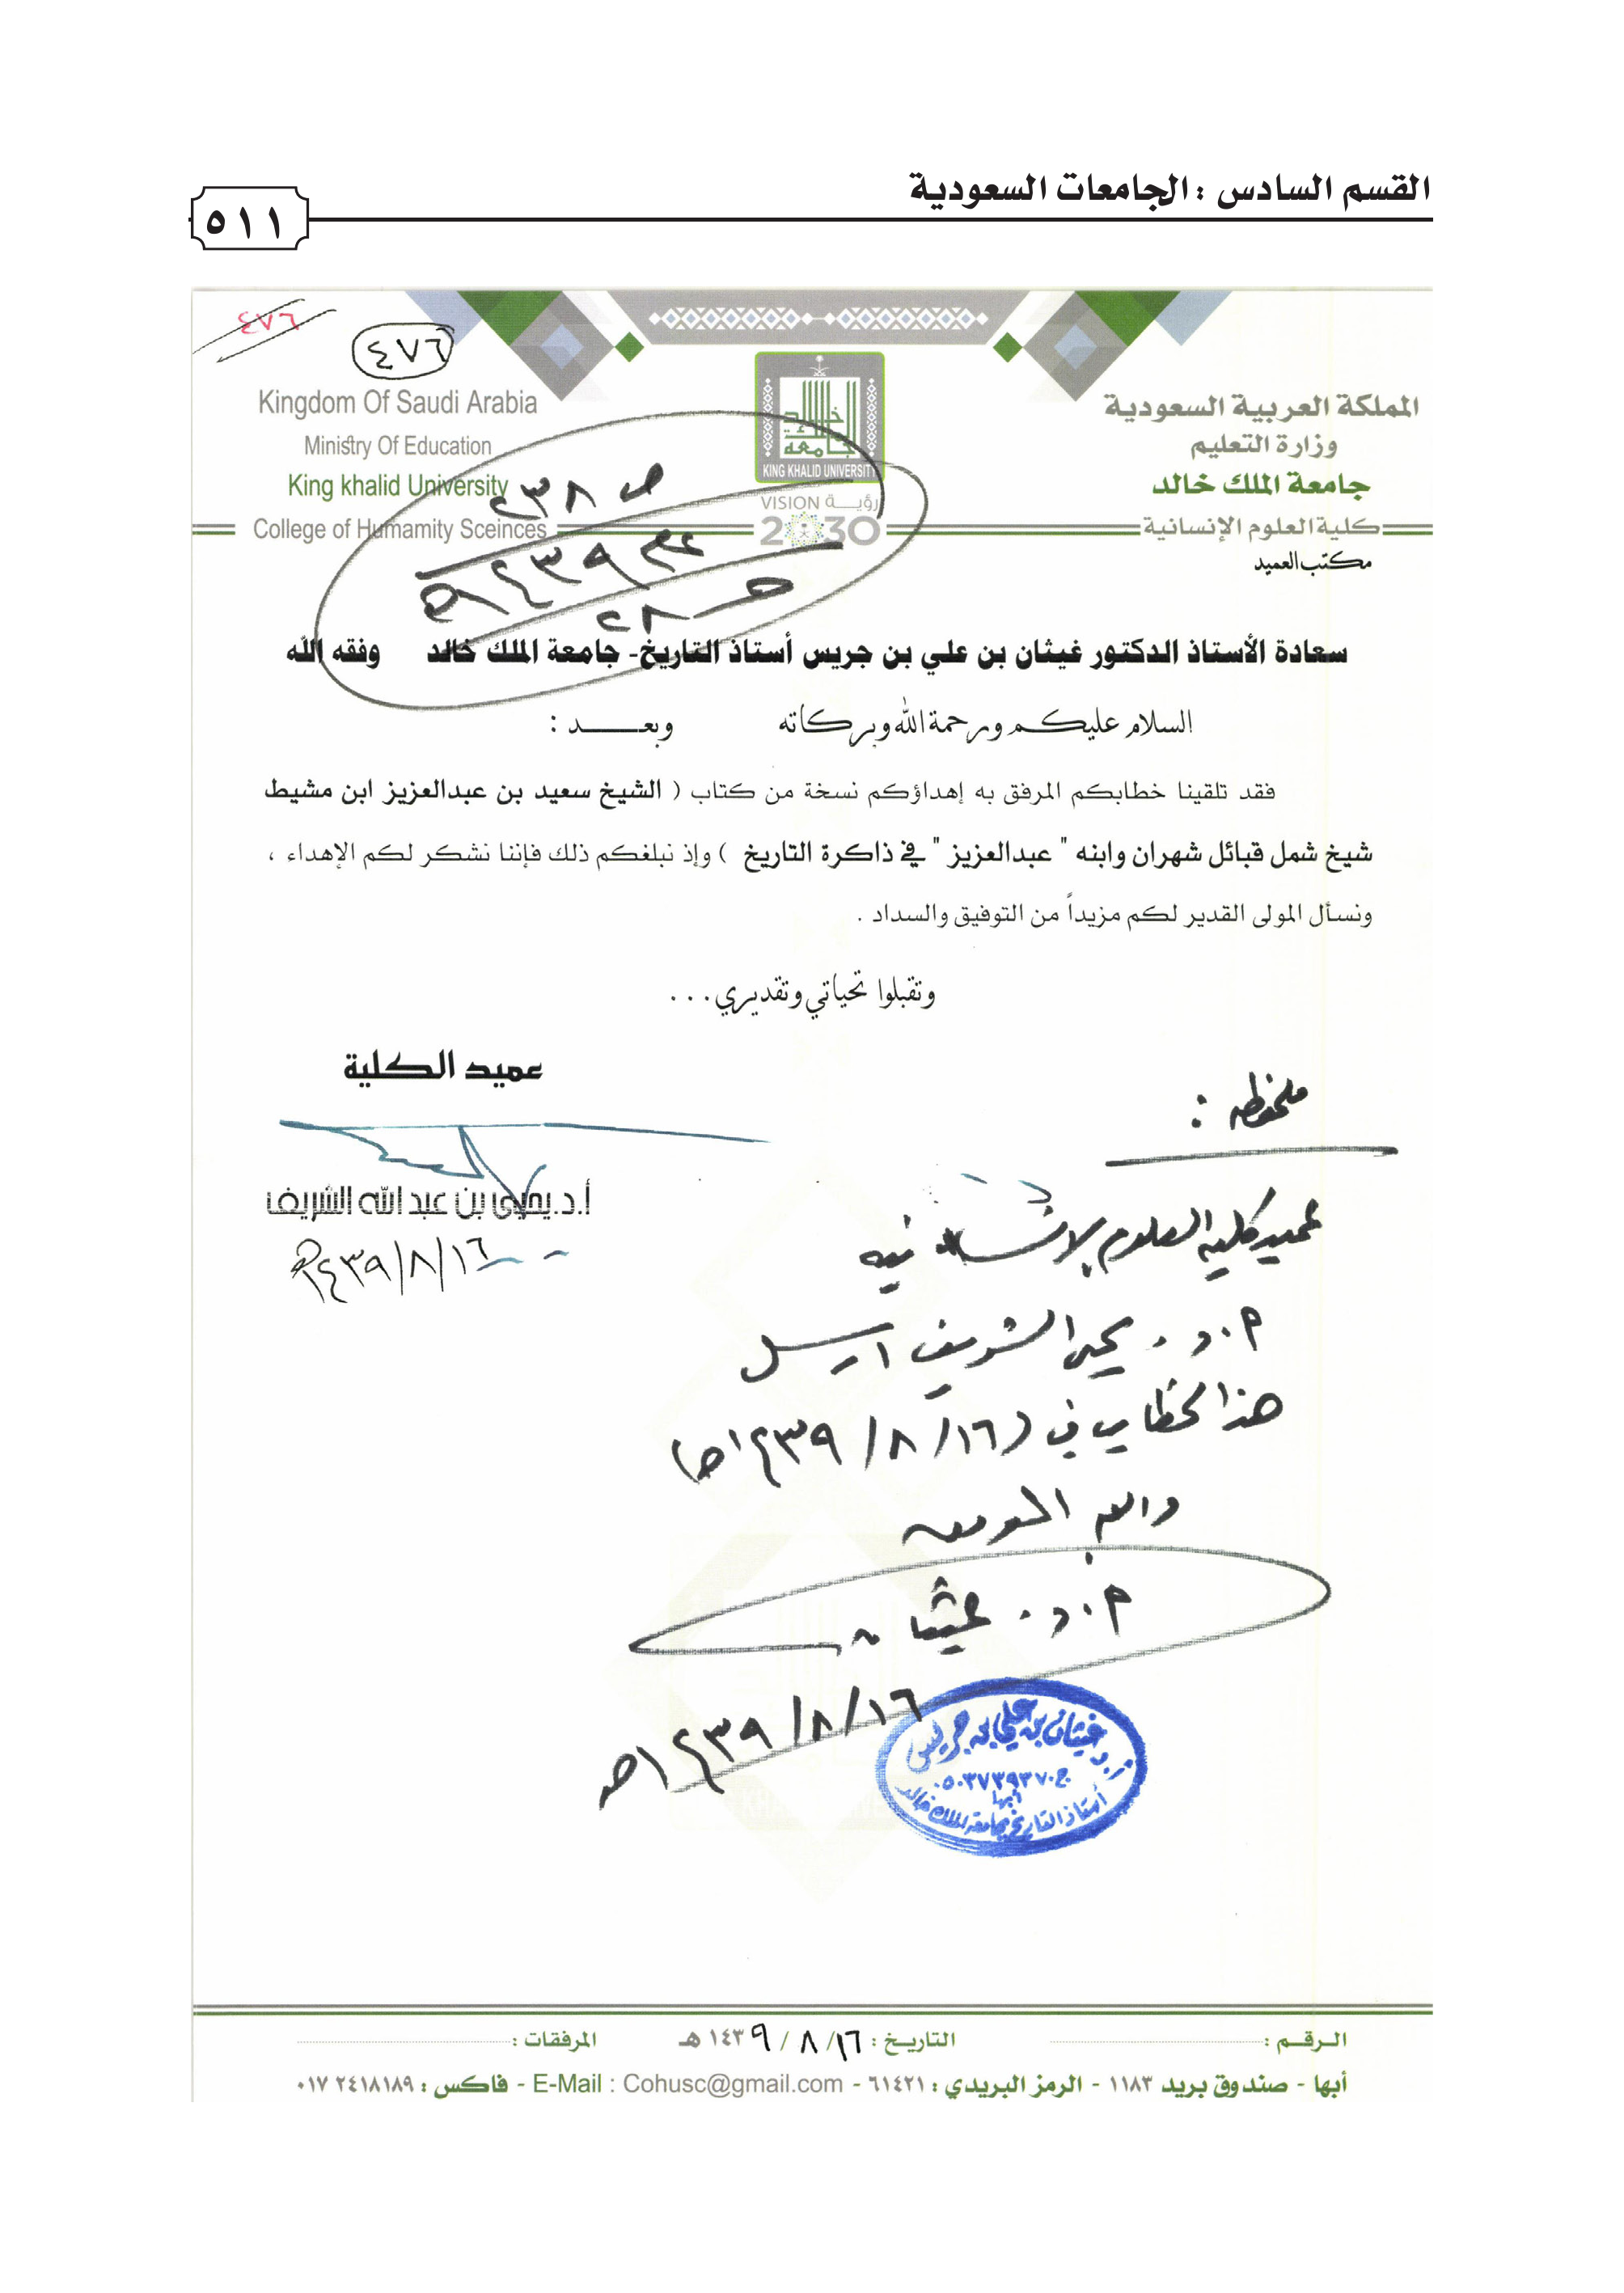 القسم السادس : الجامعات السعودية
٥١١
٤٧٦
٤٧٦
المملكة العربية السعودية
وزارة التعليم
جامعة الملك خالد
كلية العلوم الإنسانية
مكتب العميد
Kingdom Of Saudi Arabia
Ministry Of Education
King khalid University
College of Humamity Sceinces
جامعة الملك خالد
KING KHALID UNIVERSITY
VISION رؤيـــة
2030
ص ٢٣٨
سعادة الأستاذ الدكتور غيثان بن علي بن جريس أستاذ التاريخ- جامعة الملك خالد وفقه الله
السلام عليكم ورحمة الله وبركاته وبعـــــد :
فقد تلقينا خطابكم المرفق به إهداؤكم نسخة من كتاب ( الشيخ سعيد بن عبدالعزيز ابن مشيط
شيخ شمل قبائل شهران وابنه " عبدالعزيز " في ذاكرة التاريخ ) وإذ نبلغكم ذلك فإننا نشكر لكم الإهداء ،
ونسأل المولى القدير لكم مزيداً من التوفيق والسداد .
وتقبلوا تحياتي وتقديري...
عميد الكلية
أ.د.يحيى بن عبد الله الشريف
١٤٣٩/٨/١٦هـ
ملحوظه :
عميد كليه العلوم الإنسانيه
أ.د. يحيى الشريف ارسل
هذا الخطاب في (١٤٣٩/٨/١٦هـ)
والله الموفق
أ.د. غيثان
١٤٣٩/٨/١٦هـ
أ.د غيثان بن علي بن جريس
ج ٠٥٠٣٧٣٩٣٧٠
أبها
أستاذ التاريخ بجامعة الملك خالد
الرقم : التاريخ : ١٦ / ٨ / ١٤٣٩ هـ المرفقات :
أبها - صندوق بريد ١١٨٣ - الرمز البريدي : ٦١٤٢١ - E-Mail : Cohusc@gmail.com - فاكس : ٠١٧ ٢٤١٨١٨٩